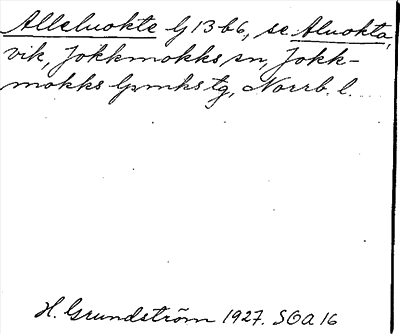 Alleluokte G 13 b 6, se Aluokta,
vik, Jokkmokks sn, Jokk-
mokks lpmkstg, Norrb. l.
H. Grundström 1927. SOA 16